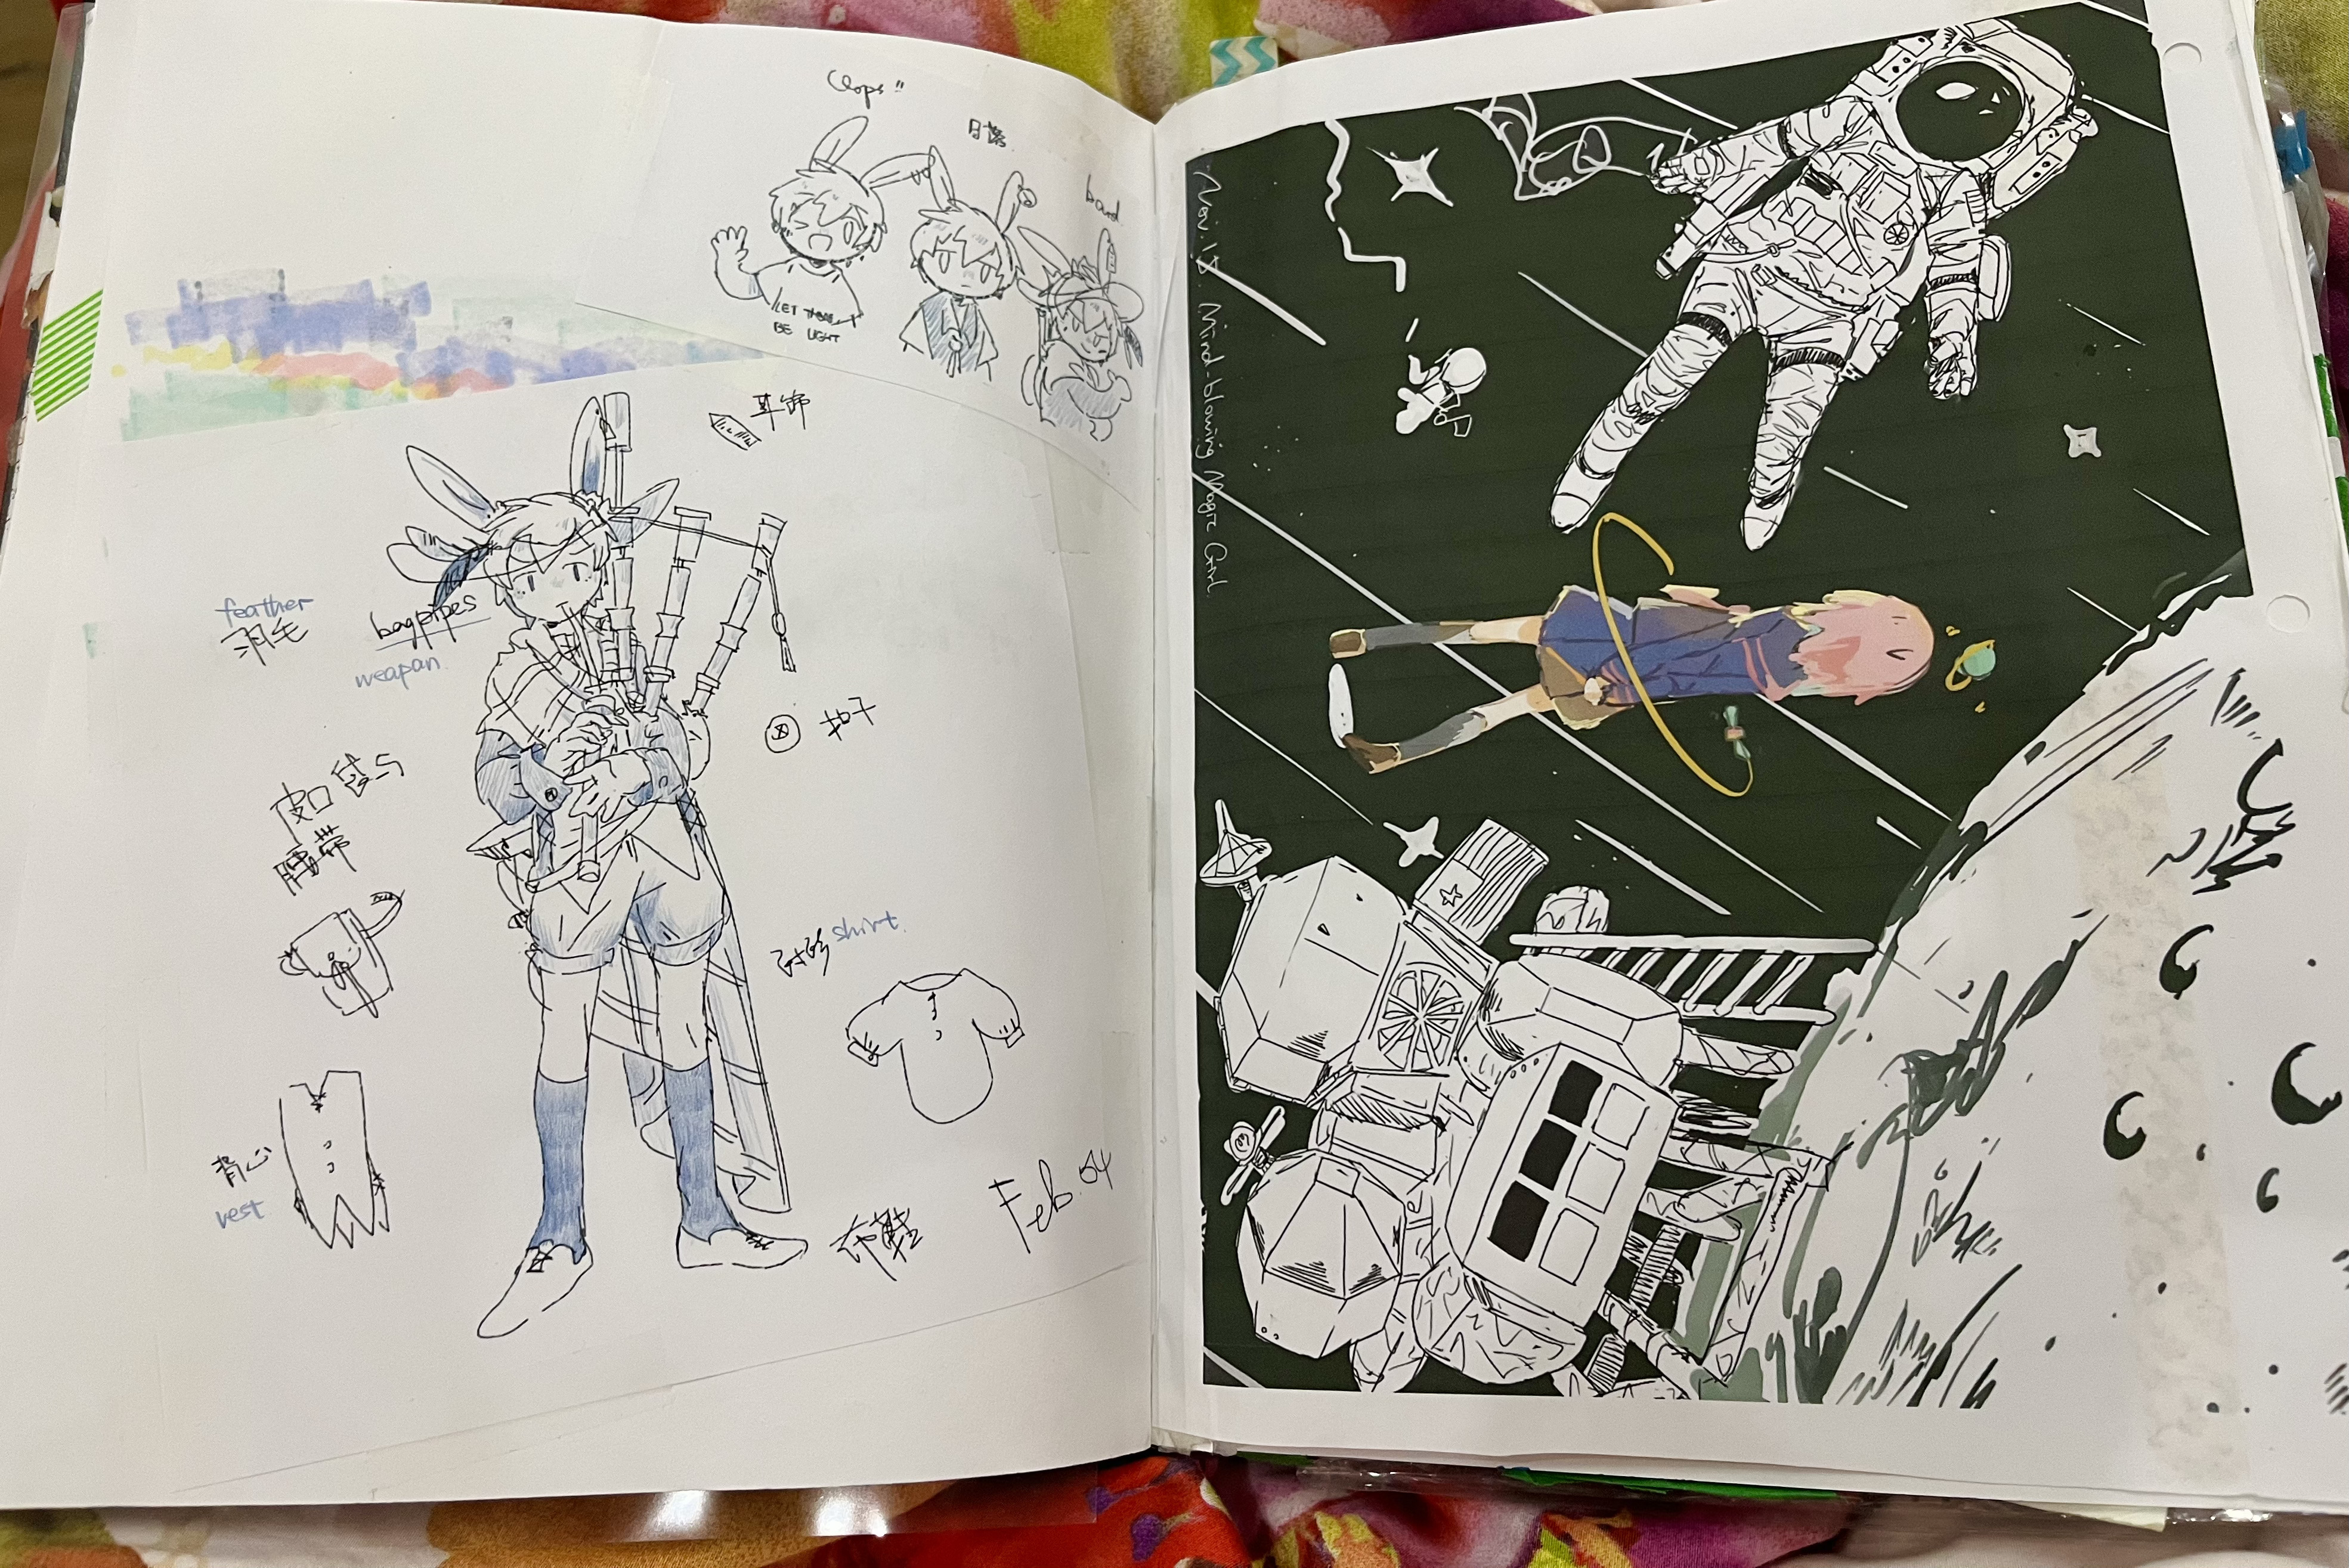 Oops!!
日落
bard
LET THERE
BE LIGHT
耳饰
feather
羽毛
bagpipes
weapan
扣子
皮口袋与
腰带
衬衫 shirt
背心
vest
布鞋
Feb.04
Nov.13. Mind-blowing Magic Girl.